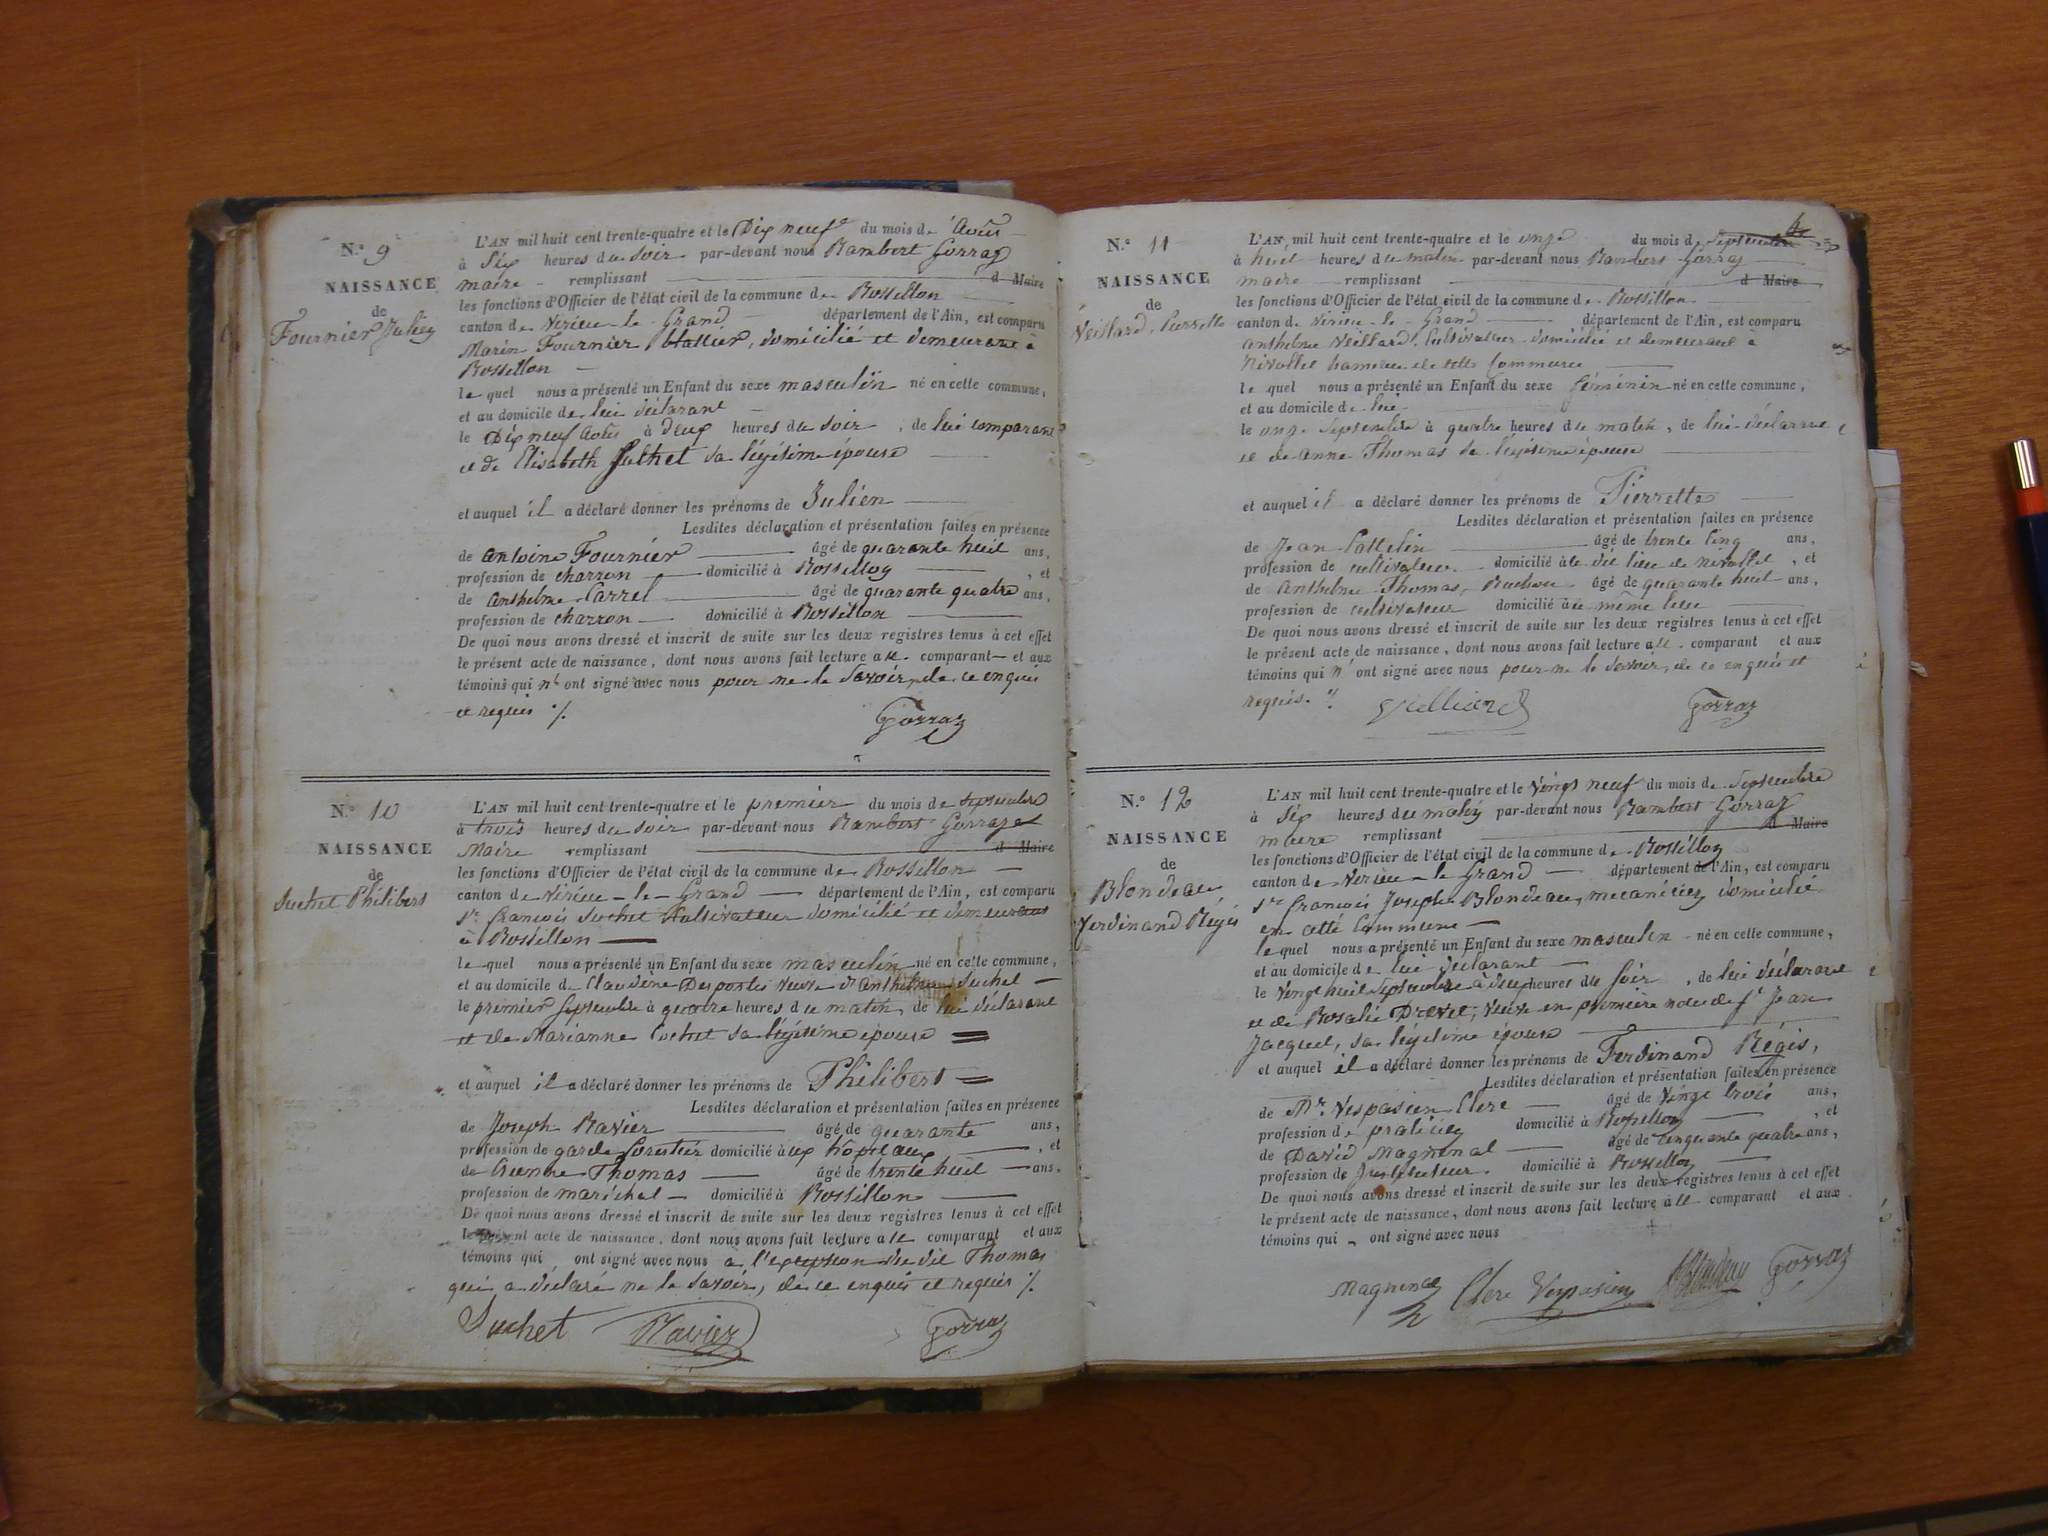 N.° 9
NAISSANCE
de
Fournier Julien
L'AN mil huit cent trente-quatre et le Dix neuf du mois d'Août
à Six heures du soir par-devant nous Rambert Gorraz
maire remplissant d Maire
les fonctions d'Officier de l'état civil de la commune de Rossillon
canton de Virieu-le-Grand département de l'Ain, est comparu
Marin Fournier domicilié et demeurant à
Rossillon
le quel nous a présenté un Enfant du sexe masculin né en cette commune,
et au domicile de lui déclarant
le Dix neuf Août à deux heures du soir, de lui comparant
et de Elisabeth sa légitime épouse
et auquel il a déclaré donner les prénoms de Julien
Lesdites déclaration et présentation faites en présence
de antoine Fournier âgé de quarante huit ans,
profession de charron domicilié à Rossillon, et
de anthelme Carrel âgé de quarante quatre ans,
profession de charron domicilié à Rossillon
De quoi nous avons dressé et inscrit de suite sur les deux registres tenus à cet effet
le présent acte de naissance, dont nous avons fait lecture au comparant et aux
témoins qui n' ont signé avec nous pour ne le savoir, de ce enquis
et requis ./.
Gorraz
N.° 10
NAISSANCE
de
Suchet Philibert
L'AN mil huit cent trente-quatre et le premier du mois de septembre
à trois heures du soir par-devant nous Rambert Gorraz
Maire remplissant d Maire
les fonctions d'Officier de l'état civil de la commune de Rossillon
canton de Virieu-le-Grand département de l'Ain, est comparu
Sr. françois Suchet Cultivateur domicilié et demeurant
à Rossillon
le quel nous a présenté un Enfant du sexe masculin né en cette commune,
et au domicile de Claudine Desportes veuve d'anthelme Suchet
le premier septembre à quatre heures du matin, de lui déclarant
et de Marianne Cochet sa légitime épouse
et auquel il a déclaré donner les prénoms de Philibert
Lesdites déclaration et présentation faites en présence
de Joseph Ravier âgé de quarante ans,
profession de garde forestier domicilié aux hôpitaux, et
de Etienne Thomas âgé de trente huit ans.
profession de maréchal domicilié à Rossillon
De quoi nous avons dressé et inscrit de suite sur les deux registres tenus à cet effet
le présent acte de naissance, dont nous avons fait lecture au comparant et aux
témoins qui ont signé avec nous a l'exception du dit Thomas
qui a déclaré ne le savoir, de ce enquis et requis ./.
Suchet Ravier Gorraz
N.° 11
NAISSANCE
de
Veillard Pierrette
L'AN mil huit cent trente-quatre et le onze du mois de septembre
à huit heures du matin par-devant nous Rambert Gorraz
maire remplissant d Maire
les fonctions d'Officier de l'état civil de la commune de Rossillon
canton de Virieu-le-Grand département de l'Ain, est comparu
anthelme Veillard Cultivateur domicilié et demeurant à
Nivollet hameau de cette Commune
le quel nous a présenté un Enfant du sexe féminin né en cette commune,
et au domicile de lui
le onze septembre à quatre heures du matin, de lui déclarant
et de anne Thomas sa légitime épouse
et auquel il a déclaré donner les prénoms de Pierrette
Lesdites déclaration et présentation faites en présence
de Jean âgé de trente Cinq ans,
profession de cultivateur domicilié à dit lieu de nivollet, et
de anthelme Thomas, âgé de quarante huit ans,
profession de cultivateur domicilié au même lieu
De quoi nous avons dressé et inscrit de suite sur les deux registres tenus à cet effet
le présent acte de naissance, dont nous avons fait lecture au comparant et aux
témoins qui n' ont signé avec nous pour ne le savoir, de ce enquis et
requis. ./.
Gorraz
N.° 12
NAISSANCE
de
Blondeau
Ferdinand Régis
L'AN mil huit cent trente-quatre et le vingt neuf du mois de septembre
à Six heures du matin par-devant nous Rambert Gorraz
maire remplissant d Maire
les fonctions d'Officier de l'état civil de la commune de Rossillon
canton de Virieu-le-Grand département de l'Ain, est comparu
Sr. françois Joseph Blondeau, mecanicien domicilié
en cette Commune
le quel nous a présenté un Enfant du sexe masculin né en cette commune,
et au domicile de lui déclarant
le vingt huit septembre à six heures du soir, de lui déclarant
et de Rosalie Drevet, veuve en première noce de Sr. Jean
Jacquet, sa légitime épouse
et auquel il a déclaré donner les prénoms de Ferdinand Régis,
Lesdites déclaration et présentation faites en présence
de Mr. Vespasien Clerc âgé de vingt trois ans,
profession de praticien domicilié à Rossillon, et
de David Magninat âgé de cinquante quatre ans,
profession de domicilié à Rossillon
De quoi nous avons dressé et inscrit de suite sur les deux registres tenus à cet effet
le présent acte de naissance, dont nous avons fait lecture au comparant et aux
témoins qui ont signé avec nous
Clerc Vespasien Gorraz